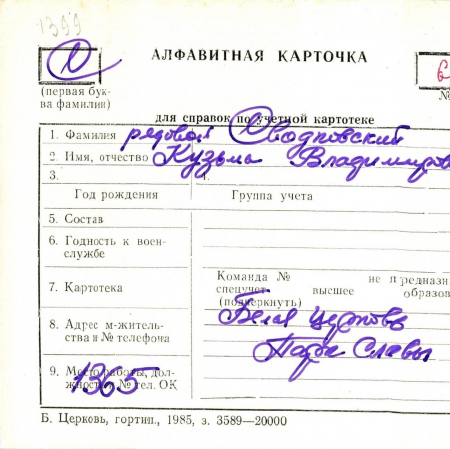 1399
АЛФАВИТНАЯ КАРТОЧКА
(первая бук-
ва фамилии)
№
для справок по учетной картотеке
1. Фамилия рядовой
2. Имя, отчество Кузьма Владимиров
3.
4.
Год рождения Группа учета
5. Состав
6. Годность к воен-
службе
7. Картотека
Команда № не предназн
спецучет высшее образов
(подчеркнуть)
8. Адрес м-житель-
ства и № телефона
Белая Церковь
Парк Славы
9. Место работы, дол-
жность и № тел. ОК
1365
Б. Церковь, гортип., 1985, з. 3589—20000